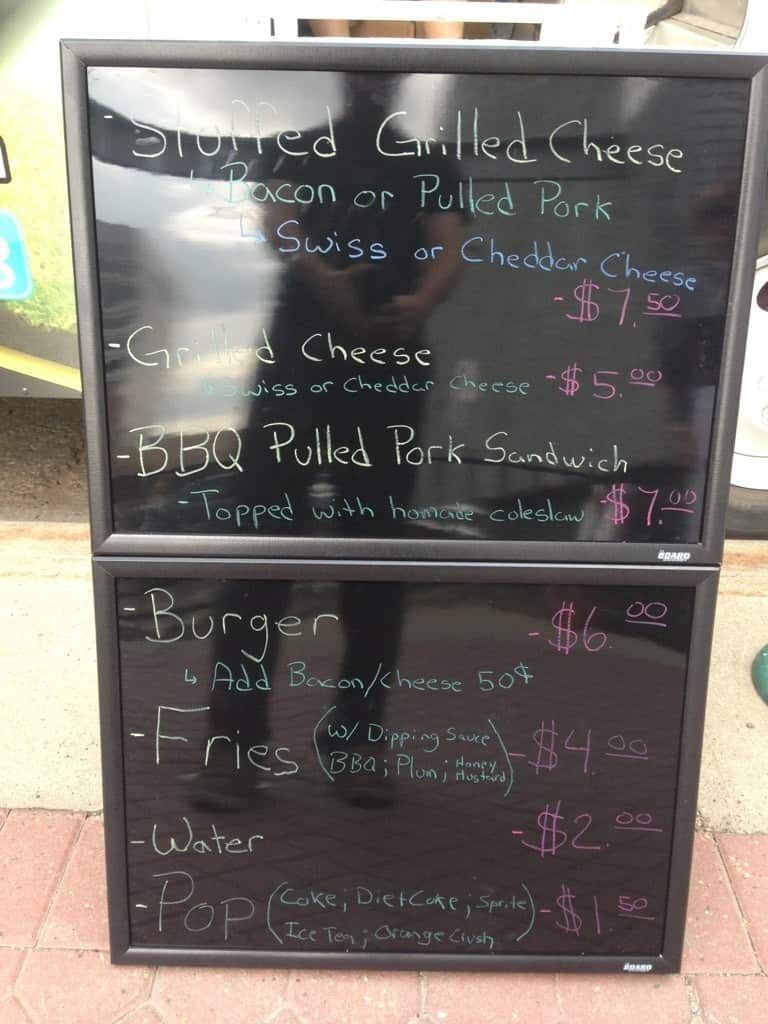 - Stuffed Grilled Cheese
↳ Bacon or Pulled Pork
↳ Swiss or Cheddar Cheese
- $7.50
- Grilled Cheese
↳ Swiss or Cheddar Cheese - $5.00
- BBQ Pulled Pork Sandwich
- Topped with homade coleslaw - $7.00
BOARD
- Burger - $6.00
↳ Add Bacon/Cheese 50¢
- Fries (w/ Dipping Sauce BBQ; Plum; Honey Mustard) - $4.00
- Water - $2.00
- Pop (Coke; Diet Coke; Sprite; Ice Tea; Orange Crush) - $1.50
BOARD